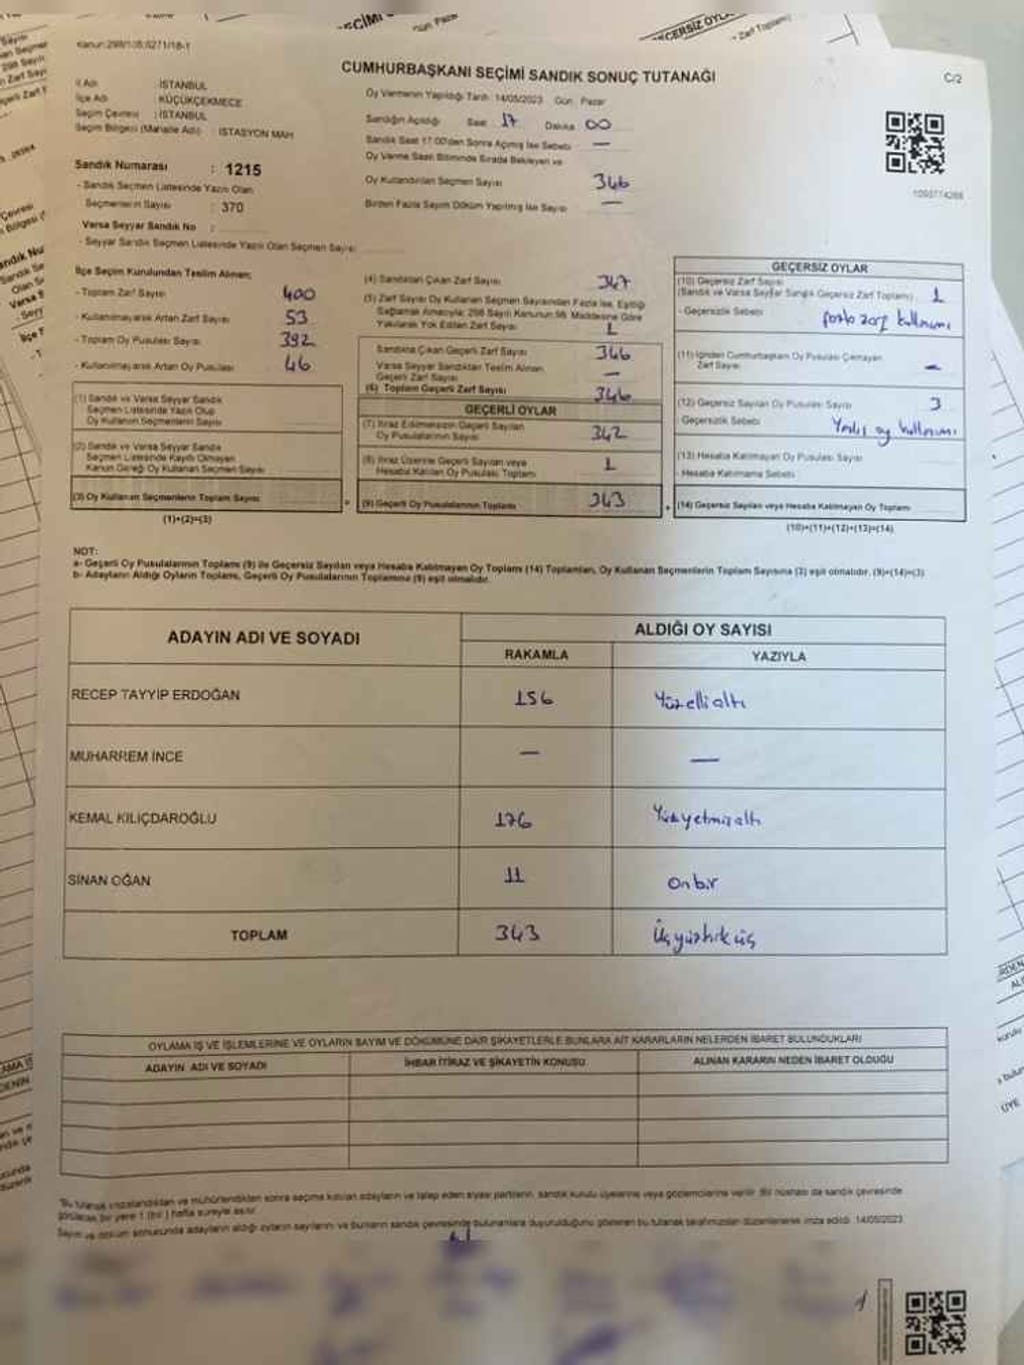 Kanun:298/105;6271/18-1
CUMHURBAŞKANI SEÇİMİ SANDIK SONUÇ TUTANAĞI
C/2
İl Adı : İSTANBUL
İlçe Adı : KÜÇÜKÇEKMECE
Seçim Çevresi : İSTANBUL
Seçim Bölgesi (Mahalle Adı) : İSTASYON MAH
Sandık Numarası : 1215
- Sandık Seçmen Listesinde Yazılı Olan
Seçmenlerin Sayısı : 370
Varsa Seyyar Sandık No :
- Seyyar Sandık Seçmen Listesinde Yazılı Olan Seçmen Sayısı
Oy Vermenin Yapıldığı Tarih: 14/05/2023 Gün: Pazar
Sandığın Açıldığı Saat 17 Dakika 00
Sandık Saat 17.00'den Sonra Açılmış İse Sebebi —
Oy Verme Saati Bitiminde Sırada Bekleyen ve
Oy Kullandırılan Seçmen Sayısı 346
Birden Fazla Sayım Döküm Yapılmış İse Sayısı —
1093774266
İlçe Seçim Kurulundan Teslim Alınan;
- Toplam Zarf Sayısı 400
- Kullanılmayarak Artan Zarf Sayısı 53
- Toplam Oy Pusulası Sayısı 392
- Kullanılmayarak Artan Oy Pusulası 46
(1) Sandık ve Varsa Seyyar Sandık
Seçmen Listesinde Yazılı Olup
Oy Kullanan Seçmenlerin Sayısı
(2) Sandık ve Varsa Seyyar Sandık
Seçmen Listesinde Kayıtlı Olmayan
Kanun Gereği Oy Kullanan Seçmen Sayısı
(3) Oy Kullanan Seçmenlerin Toplam Sayısı
(1)+(2)=(3)
(4) Sandıktan Çıkan Zarf Sayısı 347
(5) Zarf Sayısı Oy Kullanan Seçmen Sayısından Fazla İse, Eşitliği
Sağlamak Amacıyla; 298 Sayılı Kanunun 98. Maddesine Göre
Yakılarak Yok Edilen Zarf Sayısı 1
Sandıkta Çıkan Geçerli Zarf Sayısı 346
Varsa Seyyar Sandıktan Teslim Alınan
Geçerli Zarf Sayısı —
(6) Toplam Geçerli Zarf Sayısı 346
GEÇERLİ OYLAR
(7) İtiraz Edilmeksizin Geçerli Sayılan
Oy Pusulalarının Sayısı 342
(8) İtiraz Üzerine Geçerli Sayılan veya
Hesaba Katılan Oy Pusulası Toplamı 1
(9) Geçerli Oy Pusulalarının Toplamı 343
GEÇERSİZ OYLAR
(10) Geçersiz Zarf Sayısı
(Sandık ve Varsa Seyyar Sandık Geçersiz Zarf Toplamı) 1
- Geçersizlik Sebebi fazla zarf kullanımı
(11) İçinden Cumhurbaşkanı Oy Pusulası Çıkmayan
Zarf Sayısı —
(12) Geçersiz Sayılan Oy Pusulası Sayısı 3
Geçersizlik Sebebi Yanlış oy kullanımı
(13) Hesaba Katılmayan Oy Pusulası Sayısı
- Hesaba Katılmama Sebebi
(14) Geçersiz Sayılan veya Hesaba Katılmayan Oy Toplamı
(10)+(11)+(12)+(13)=(14)
NOT:
a- Geçerli Oy Pusulalarının Toplamı (9) ile Geçersiz Sayılan veya Hesaba Katılmayan Oy Toplamı (14) Toplamları, Oy Kullanan Seçmenlerin Toplam Sayısına (3) eşit olmalıdır. (9)+(14)=(3)
b- Adayların Aldığı Oyların Toplamı, Geçerli Oy Pusulalarının Toplamına (9) eşit olmalıdır.
ADAYIN ADI VE SOYADI
ALDIĞI OY SAYISI
RAKAMLA YAZIYLA
RECEP TAYYİP ERDOĞAN 156 Yüzellialtı
MUHARREM İNCE — —
KEMAL KILIÇDAROĞLU 176 Yüzyetmişaltı
SİNAN OĞAN 11 Onbir
TOPLAM 343 Üçyüzkırküç
OYLAMA İŞ VE İŞLEMLERİNE VE OYLARIN SAYIM VE DÖKÜMÜNE DAİR ŞİKAYETLERLE BUNLARA AİT KARARLARIN NELERDEN İBARET BULUNDUKLARI
ADAYIN ADI VE SOYADI İHBAR İTİRAZ VE ŞİKAYETİN KONUSU ALINAN KARARIN NEDEN İBARET OLDUĞU
Bu tutanak imzalandıktan ve mühürlendikten sonra seçime katılan adayların ve talep eden siyasi partilerin, sandık kurulu üyelerine veya gözlemcilerine verilir. Bir nüshası da sandık çevresinde
görülecek bir yere 1 (bir) hafta süreyle asılır.
Sayım ve döküm sonucunda adayların aldığı oyların sayılarını ve bunların sandık çevresinde bulunanlara duyurulduğunu gösteren bu tutanak tarafımızdan düzenlenerek imza edildi. 14/05/2023